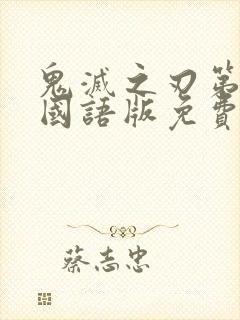 鬼滅之刃第
國語版免費
蔡志忠